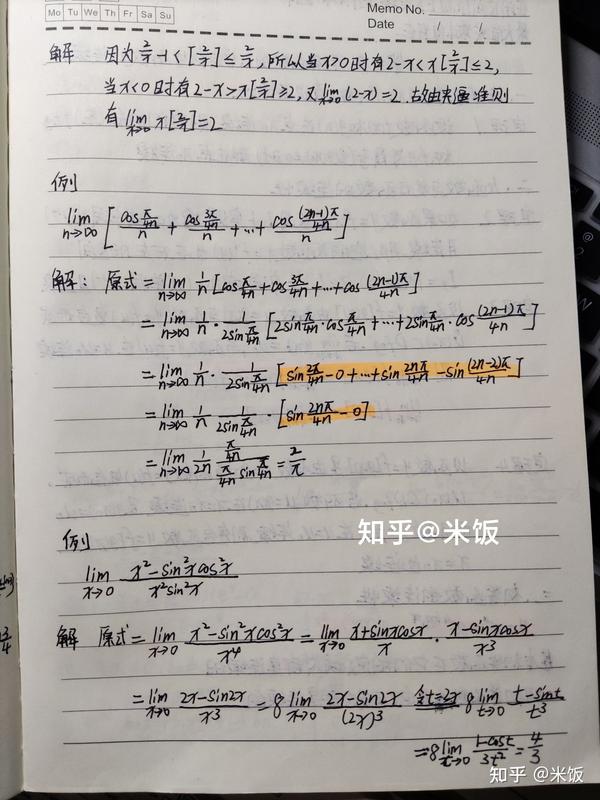 Mo Tu We Th Fr Sa Su
Memo No.
Date / /
解 因为 2/x - 1 < [2/x] ≤ 2/x, 所以当 x>0 时有 2-x < x[2/x] ≤ 2,
当 x<0 时有 2-x > x[2/x] ≥ 2, 又 lim_{x→0} (2-x) = 2. 故由夹逼准则
有 lim_{x→0} x[2/x] = 2
例
lim_{n→∞} [ cos(π/4n)/n + cos(3π/4n)/n + … + cos((2n-1)π/4n)/n ]
解: 原式 = lim_{n→∞} 1/n [cos π/4n + cos 3π/4n + … + cos (2n-1)π/4n]
= lim_{n→∞} 1/n · 1/(2sin π/4n) [2sin π/4n · cos π/4n + … + 2sin π/4n · cos (2n-1)π/4n]
= lim_{n→∞} 1/n · 1/(2sin π/4n) [sin 2π/4n - 0 + … + sin 2nπ/4n - sin (2n-2)π/4n]
= lim_{n→∞} 1/n · 1/(2sin π/4n) · [sin 2nπ/4n - 0]
= lim_{n→∞} 1/2n (π/4n)/(π/4n sin π/4n) = 2/π
知乎@米饭
例
lim_{x→0} (x² - sin²x cos²x)/(x² sin²x)
解 原式 = lim_{x→0} (x² - sin²x cos²x)/x⁴ = lim_{x→0} (x + sinx cosx)/x · (x - sinx cosx)/x³
= lim_{x→0} (2x - sin2x)/x³ = 8 lim_{x→0} (2x - sin2x)/(2x)³ 令t=2x 8 lim_{t→0} (t - sint)/t³
= 8 lim_{t→0} (1 - cost)/3t² = 4/3
知乎 @米饭